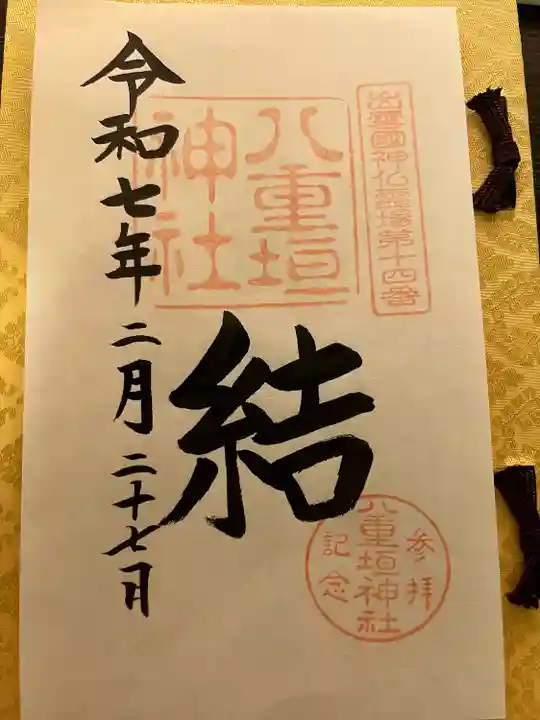 出雲國神仏霊場第十四番
八重垣
神社
結
八重垣神社
参拝
記念
令和七年二月二十七日